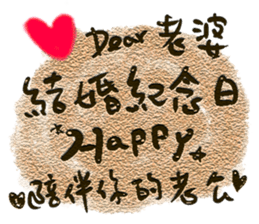 Dear老婆
結婚紀念日
Happy
陪伴你的老公